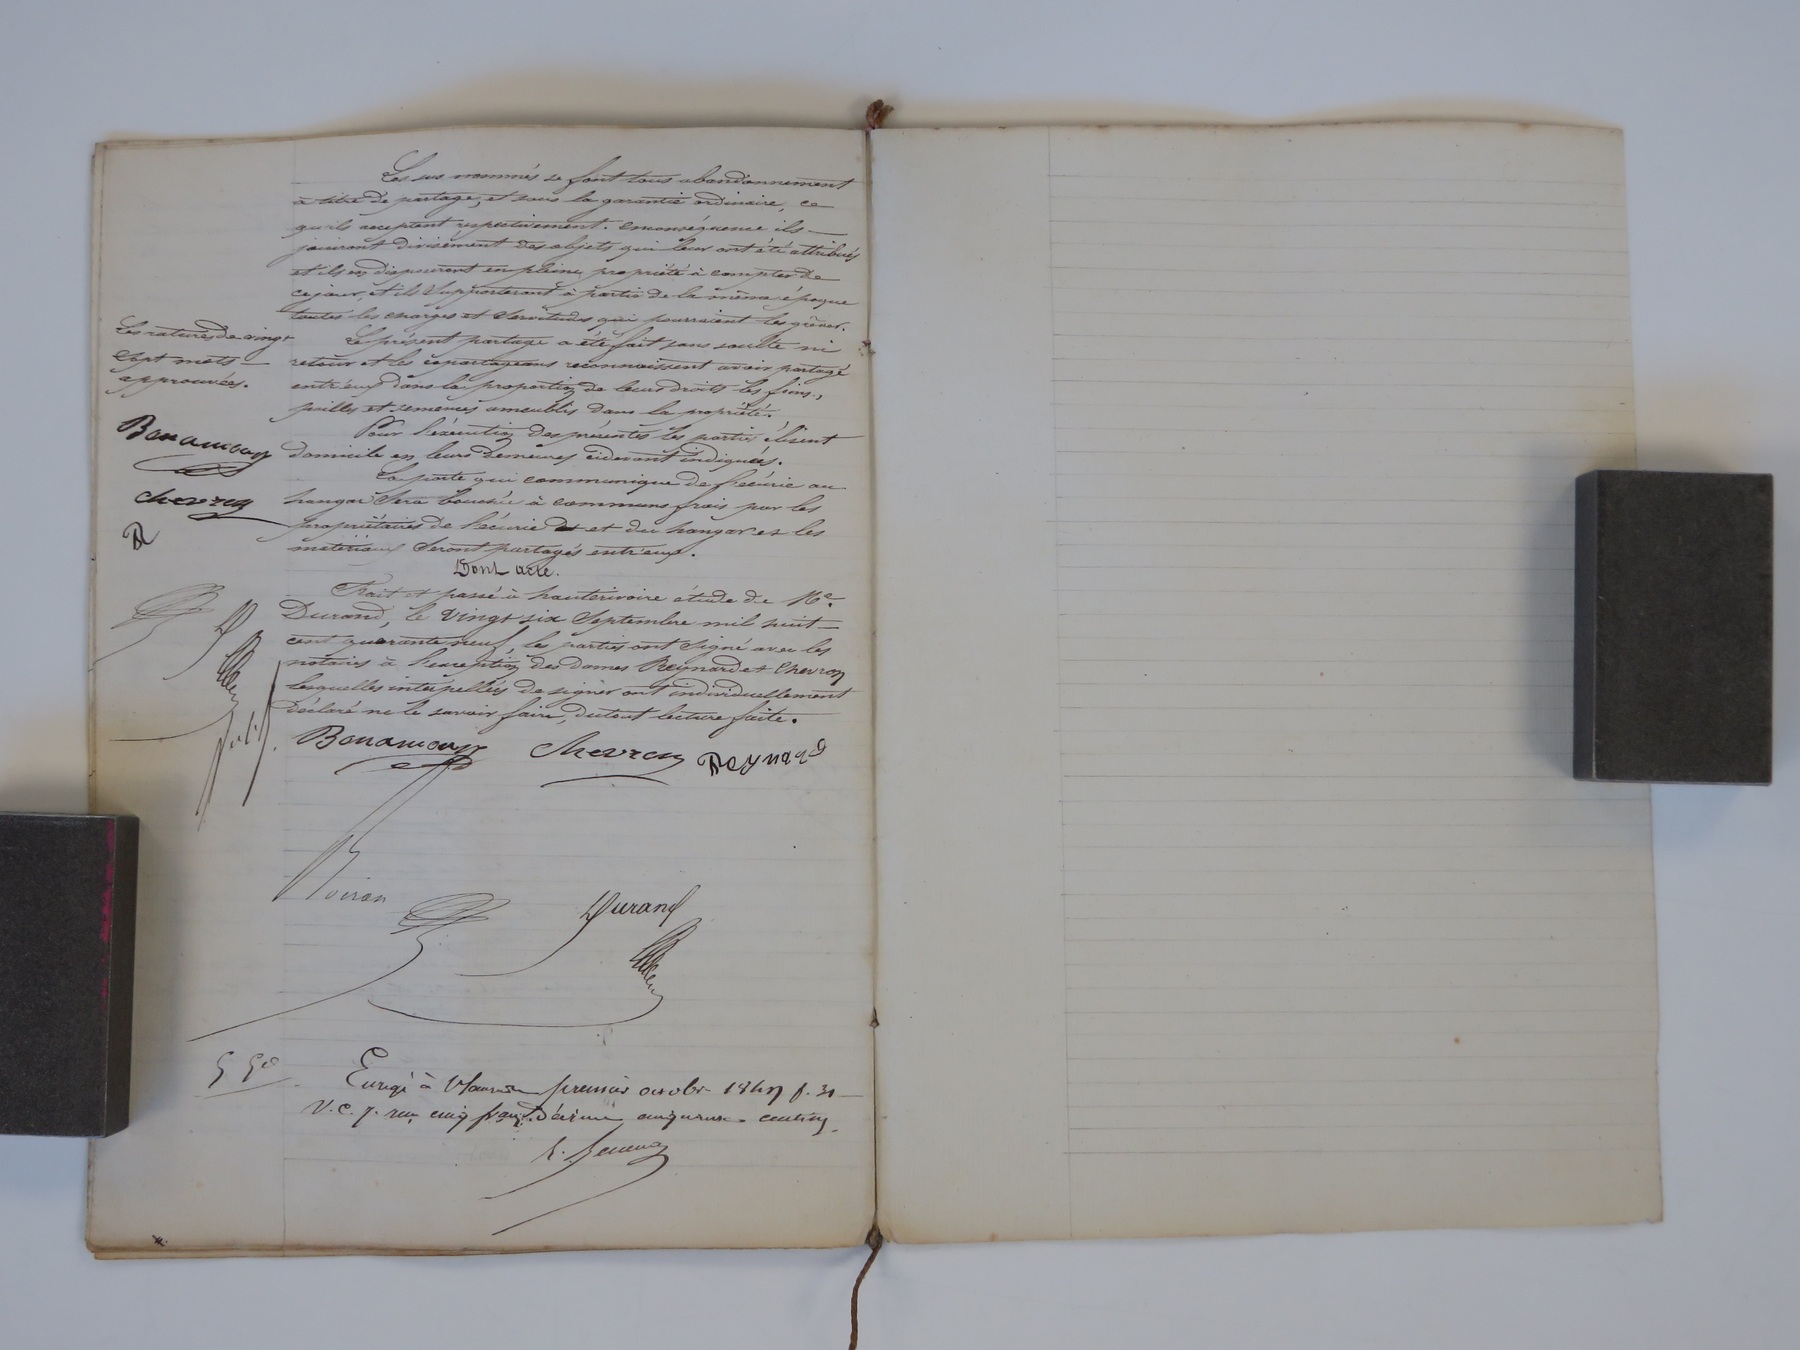 Les sus nommés se font tous abandonnement
à titre de partage, et sous la garantie ordinaire, ce
qu'ils acceptent respectivement. enconséquence ils
jouiront divisément des objets qui leur ont été attribués
et ils en disposeront en pleine propriété à compter de
ce jour, et ils supporteront à partir de la même époque
toutes les charges et servitudes qui pourraient les grêver.
Le présent partage a été fait sans soulte ni
retour et les copartageans reconnaissent avoir partagé
entr'eux dans la proportion de leurs droits les foins,
pailles et semences ameublis dans la propriété.
Pour l'exécution des présentes les parties élisent
domicile en leurs demeures cidevant indiquées.
La porte qui communique de l'écurie au
hangar sera bouchée à communs frais par les
propriétaires de l'écurie et du hangar et les
matériaux seront partagés entr'eux.
Dont acte.
Fait et passé à hauterivoire étude de Me.
Durand, le vingt six Septembre mil huit
cent quarante neuf, les parties ont signé avec les
notaires à l'exception des dames Reynard et Chevron
lesquelles interpellées de signer ont individuellement
déclaré ne le savoir faire, dutout lecture faite.
Les ratures de vingt
sept mots
approuvées.
Bonamour
chevron
R
D
Bonamour chevron Reynard
Voiron
Durand
5 50
Enregé à premier octobre 1849 f. 31
V. C. 7. reçu cinq francs Décime cinquante centimes